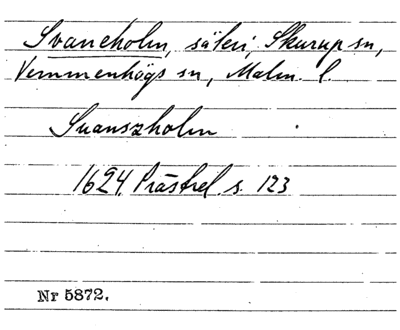 Svaneholm, säteri, Skurup sn,
Vemmenhögs sn, Malm. l.
Suanszholm
1624 Prästrel. s. 123
Nr 5872.